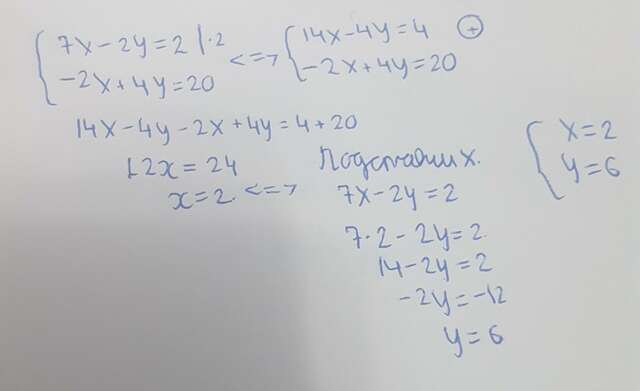 7x-2y=2 |·2 <=> 14x-4y=4 (+)
-2x+4y=20 -2x+4y=20
14x-4y-2x+4y=4+20
12x=24
x=2. <=>
Подставим x.
7x-2y=2
7·2-2y=2
14-2y=2
-2y=-12
y=6
x=2
y=6